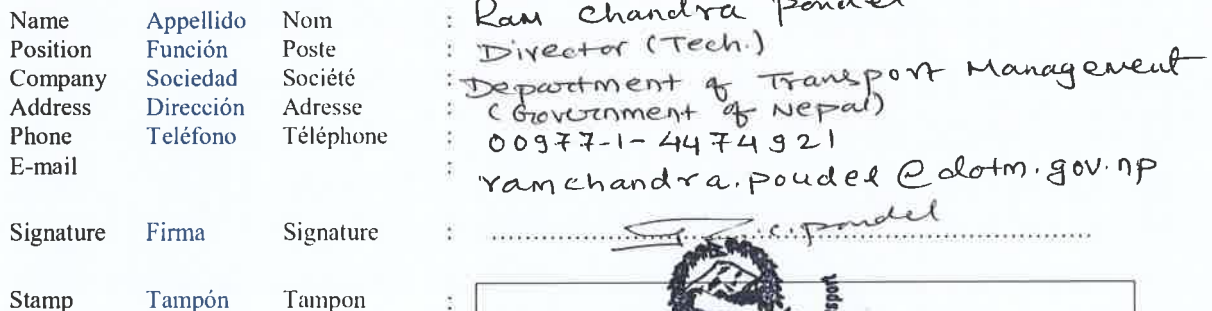 Name Appellido Nom : Ram Chandra Poudel
Position Función Poste : Director (Tech.)
Company Sociedad Société : Department of Transport Management
Address Dirección Adresse : (Government of Nepal)
Phone Teléfono Téléphone : 00977-1-4474921
E-mail : ramchandra.poudel@dotm.gov.np
Signature Firma Signature : R.C.Poudel
Stamp Tampón Tampon :